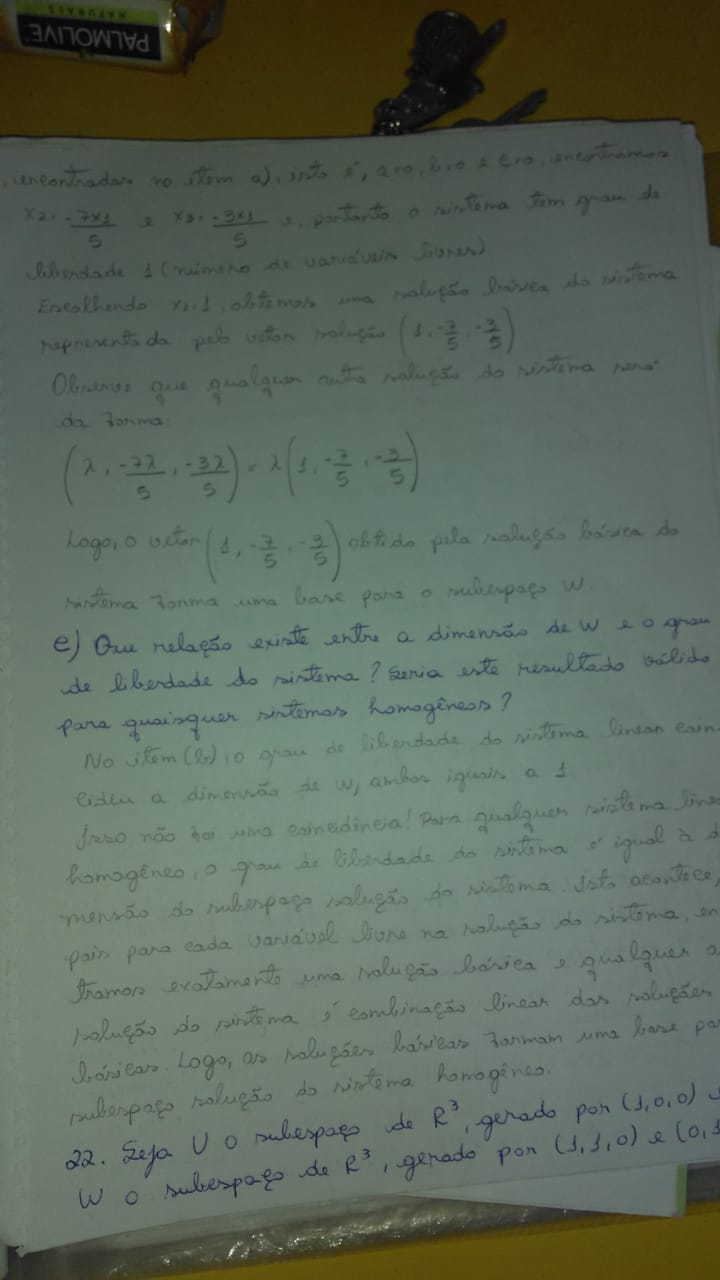 PALMOLIVE
NATURALS
encontradas no item a), isto é, a=0, b=0 e c=0, encontramos
x2 = -7x1/5 e x3 = -3x1/5 e, portanto o sistema tem grau de
liberdade 1 (número de variáveis livres)
Escolhendo x1=1, obtemos uma solução básica do sistema
representada pelo vetor solução (1, -7/5, -3/5)
Observe que qualquer outra solução do sistema será
da forma:
(λ, -7λ/5, -3λ/5) = λ(1, -7/5, -3/5)
Logo, o vetor (1, -7/5, -3/5) obtido pela solução básica do
sistema forma uma base para o subespaço W.
e) Que relação existe entre a dimensão de W e o grau
de liberdade do sistema? Seria este resultado válido
para quaisquer sistemas homogêneos?
No item (b), o grau de liberdade do sistema linear coin
cidiu a dimensão de W, ambos iguais a 1
Isso não foi uma coincidência! Para qualquer sistema linea
homogêneo, o grau de liberdade do sistema é igual à d
mensão do subespaço solução do sistema. Isto acontece,
pois para cada variável livre na solução do sistema, en
tramos exatamente uma solução básica e qualquer o
solução do sistema é combinação linear das soluções
básicas. Logo, as soluções básicas formam uma base pa
subespaço solução do sistema homogêneo.
22. Seja U o subespaço de R³, gerado por (1,0,0) e
W o subespaço de R³, gerado por (1,1,0) e (0,1